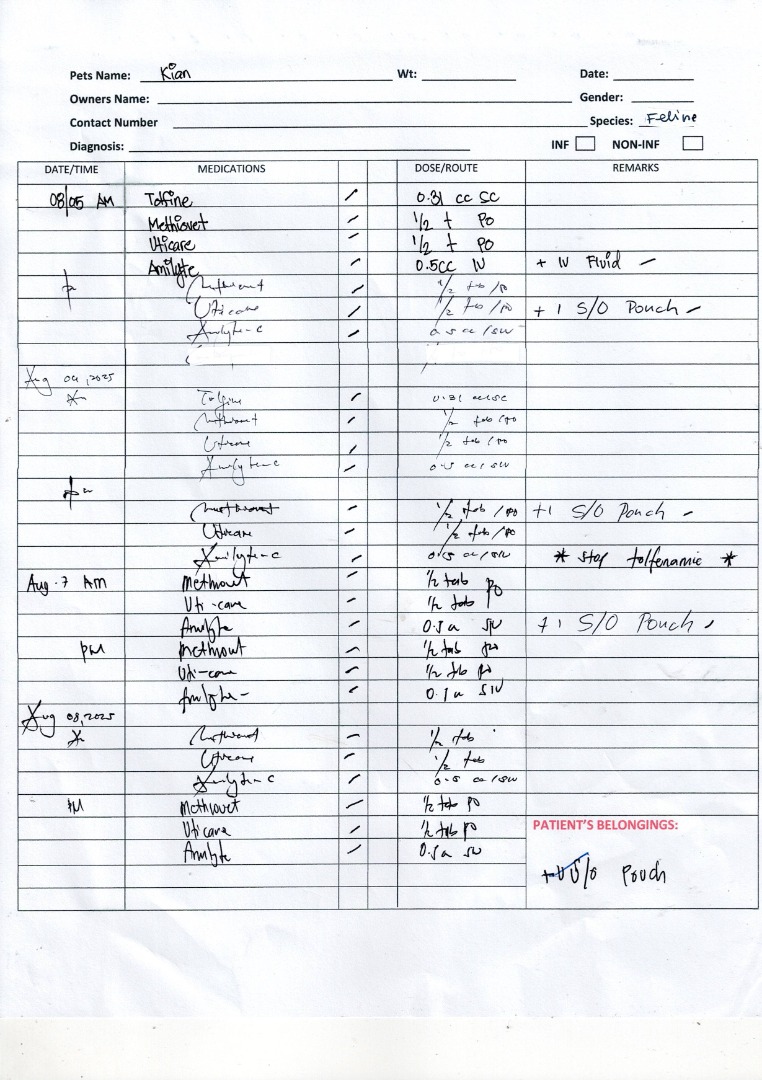 Pets Name: Kian Wt: Date:
Owners Name: Gender:
Contact Number Species: Feline
Diagnosis: INF NON-INF
DATE/TIME MEDICATIONS DOSE/ROUTE REMARKS
08/05 AM Tolfine 0.31 cc SC
Methiovet 1/2 t PO
Uticare 1/2 t PO
Amilyte 0.5cc IV + IV Fluid
1/2 tab/po
Uticare 1/2 tab/po + 1 S/O Pouch
Amilyte-c
Aug 06, 2025
Tolfine 0.31 cc/sc
1/2 tab/po
Uticare 1/2 tab/po
Amilyte-c
1/2 tab/po +1 S/O Pouch
Uticare 1/2 tab/po
Amilyte-c * stop tolfenamic *
Aug. 7 AM Methiovet 1/2 tab po
Uti-care 1/2 tab
Amilyte +1 S/O Pouch
PM Methiovet 1/2 tab po
Uti-care 1/2 tab po
Amilyte
Aug 08, 2025
1/2 tab
Uticare 1/2 tab
Amilyte-c
PM Methiovet 1/2 tab po
Uticare 1/2 tab po
Amilyte
PATIENT'S BELONGINGS:
S/O Pouch